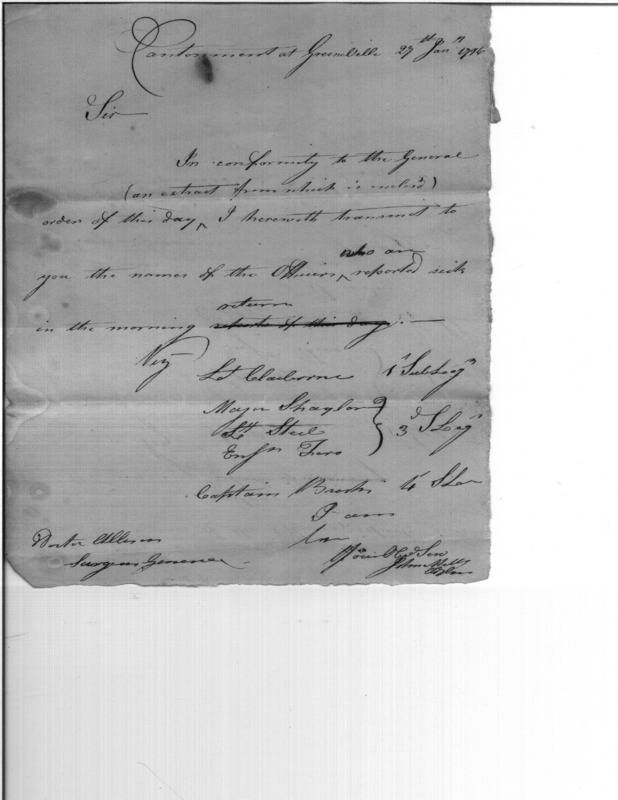 Cantonment at Greeneville 27th Jany 1796
Sir
In conformity to the General
(an extract from which is enclosd)
order of this day ^ I herewith transmit to
who are
you the names of the Officers ^ reported sick
return
in the morning reports of this day. —
Viz
Lt Claiborne 1st Sub Legn
Major Shaylor
Lt Steel } 3d S Legn
Ensn
Captain Brock 4 S Le
I am
Sir
Your Obd Ser
Doctor Allison
John Mills
Surgeon General